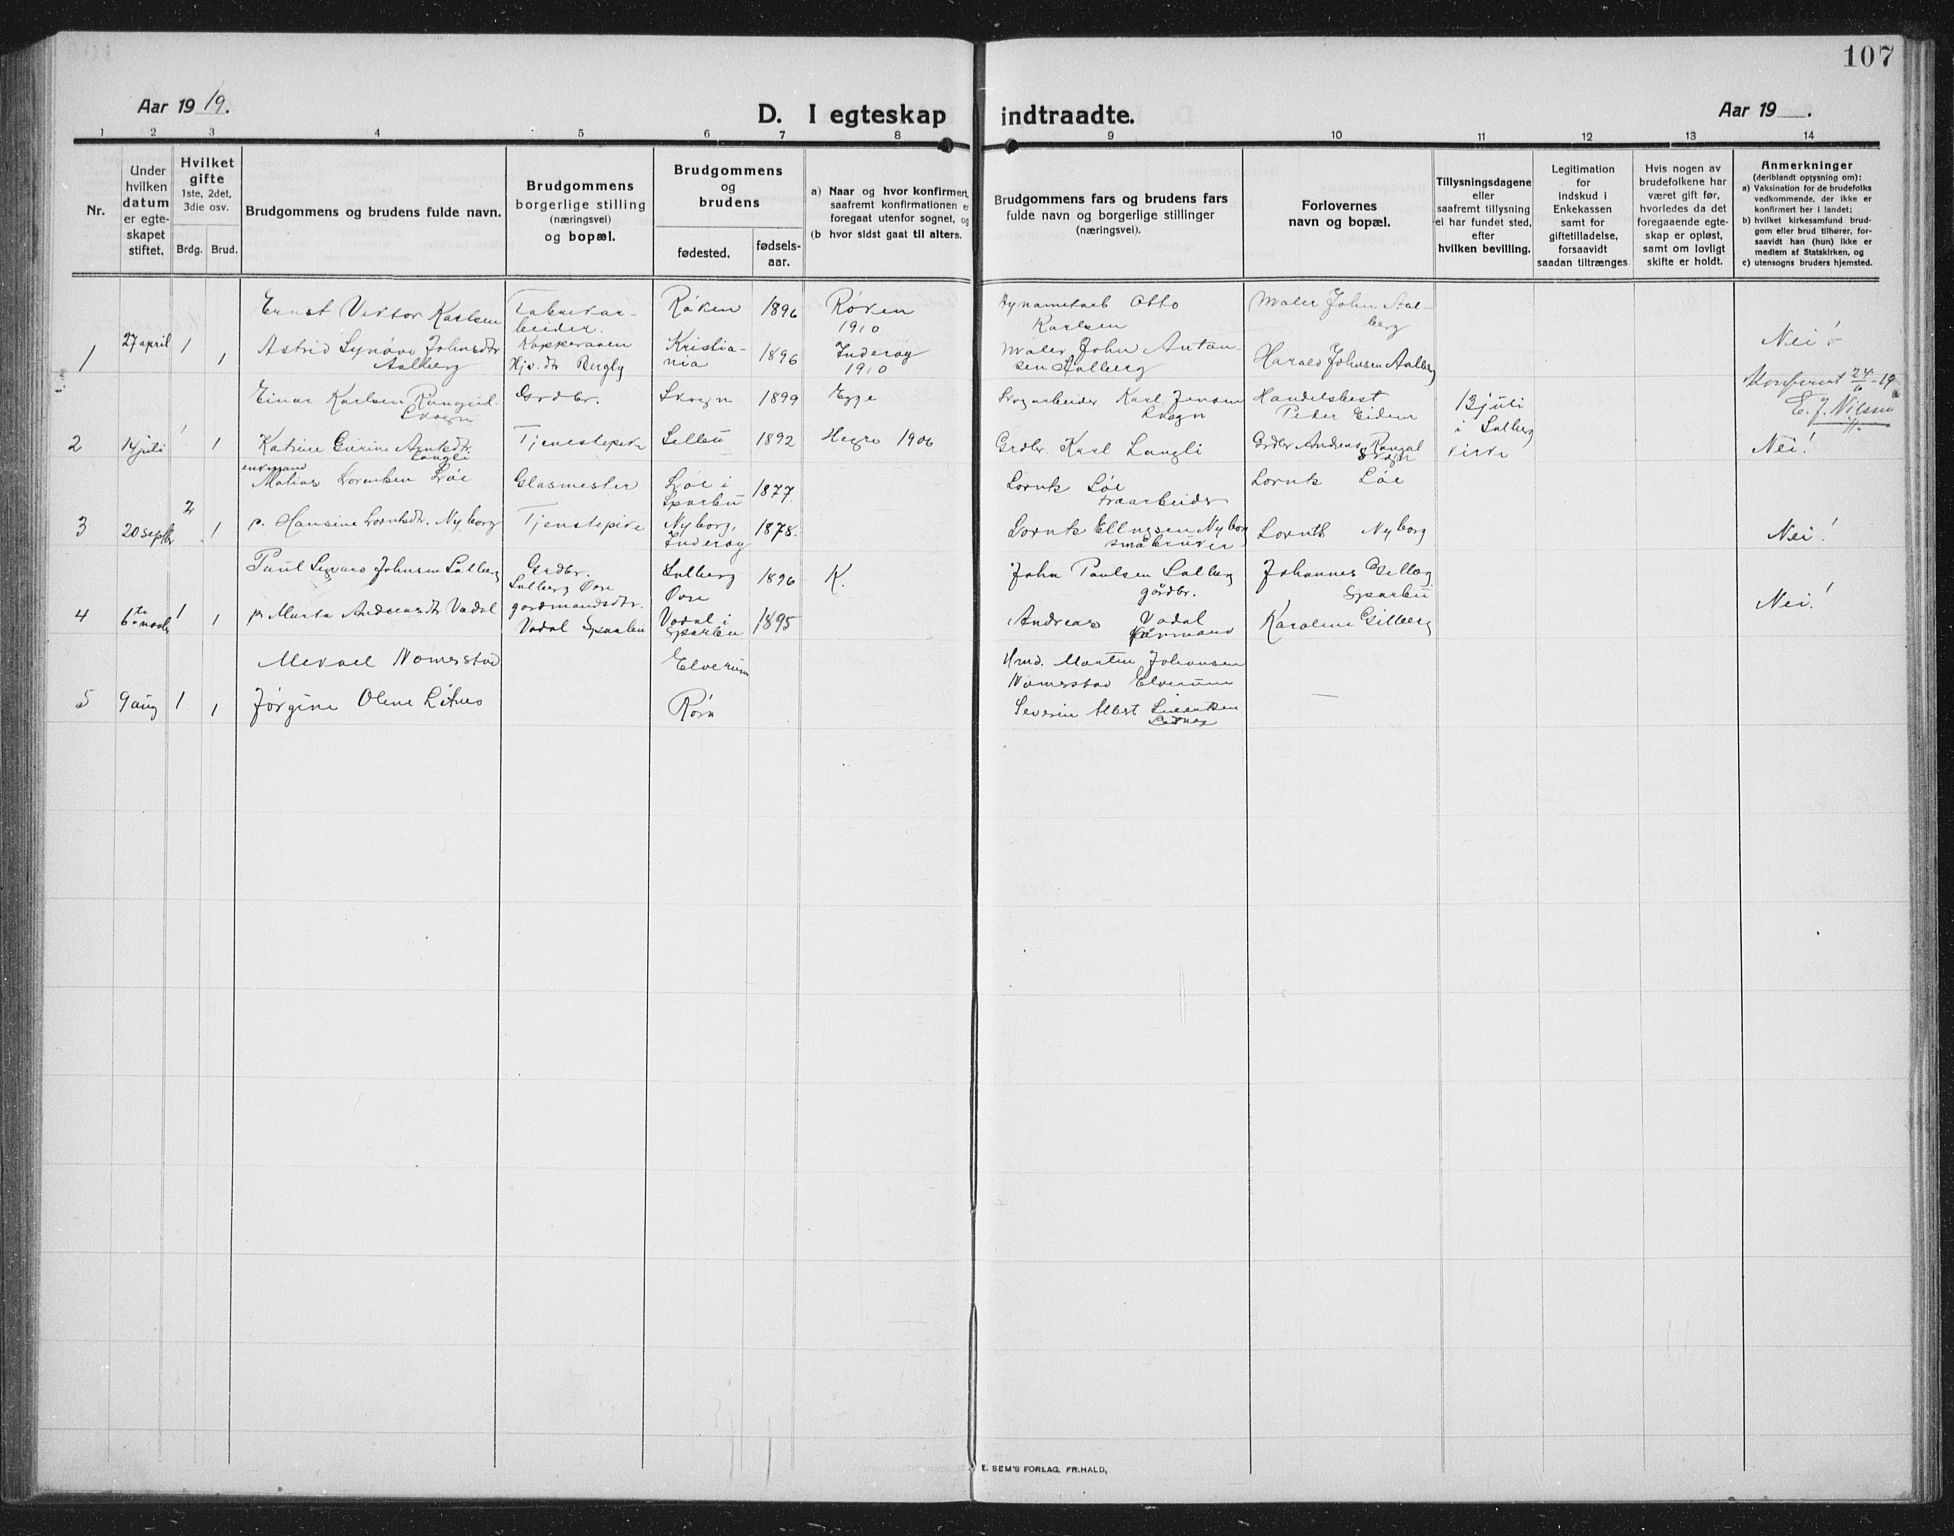 107
Aar 1919.
D. I egteskap indtraadte.
Aar 19 .
1 2 3 4 5 6 7 8 9 10 11 12 13 14
Nr.
Under hvilken datum er egte-skapet stiftet.
Hvilket gifte
1ste, 2det, 3die osv.
Brdg. Brud.
Brudgommens og brudens fulde navn.
Brudgommens borgerlige stilling (næringsvei) og bopæl.
Brudgommens og brudens
fødested. fødsels-aar.
a) Naar og hvor konfirmert, saafremt konfirmationen er foregaat utenfor sognet, og
(b hvor sidst gaat til alters.
Brudgommens fars og brudens fars fulde navn og borgerlige stillinger (næringsvei).
Forlovernes navn og bopæl.
Tillysningsdagene eller saafremt tillysning ei har fundet sted, efter hvilken bevilling.
Legitimation for indskud i Enkekassen samt for giftetilladelse, forsaavidt saadan tiltrænges
Hvis nogen av brudefolkene har været gift før, hvorledes da det foregaaende egte-skap er opløst, samt om lovligt skifte er holdt.
Anmerkninger
(deriblandt optysning om):
a) Vaksination for de brudefolks vedkommende, der ikke er konfirmert her i landet;
b) hvilket kirkesamfund brud-gom eller brud tilhører, for-saavidt han (hun) ikke er medlem af Statskirken, og
c) utensogns bruders hjemsted.
Ernst Viktor Karlsen
Fabrikar-
beider.
Røken 1896
Røken
1910
Dynamitarb Otto
Karlsen
Maler John Aal-
berg
1 27 april 1 1
Astrid Synøve Johnsdtr
Aalberg
Hjv. dtr Bergly
Kristia-
nia 1896
Inderøy
1910
Maler John Anton-
sen Aalberg
Harald Johnsen Aalberg
Nei!
Konferert 24/6-19
E. J. Nilssen
Einar Karlsen
Skogn
Grdbr.
Skogn 1899
Egge
Skogarbeider Karl Jensen
Skogn
Handelsbest
Peder Eidem
13 juli
i Salberg
kirke
2 14 juli 1 1
Katrine Gurine
Langli
Tjenestepike
1892
Hegre 1906
Grdbr. Karl Langli
Grdbr Andreas
Skogn
Nei!
enkmand
Matias Lorntsen Løe
Glasmester
Løe i
Sparbu 1877
Lornts Løe
traarbeider
Lornts Løe
3 20 septbr 2 1
p. Hansine Lorntsdtr. Nyborg
Tjenstepike
Nyborg,
Inderøy 1878.
Lornts Ellingsen Nyborg
småbruker
Lornts Nyborg
Nei!
Paul Sigvard Johnsen Salberg
Grdbr.
Salberg Øvre
Salberg
Øvre 1896
K.
John Paulsen Salberg
gårdbr.
Johannes
Sparbu
4 6te novbr 1 1
p. Marta Andreasdtr Vadal
gårdmandsdtr.
Vadal Sparbu
Vadal i
Sparbu 1895
Andreas Vadal
Karoline Gilberg
Nei!
Mikael Nomerstad
Elverum
Martin Johansen
Nomerstad Elverum
5 9 aug 1 1
Jørgine Oline
Rørn
Severin Albst
—
E. SEM'S FORLAG, FR.HALD,